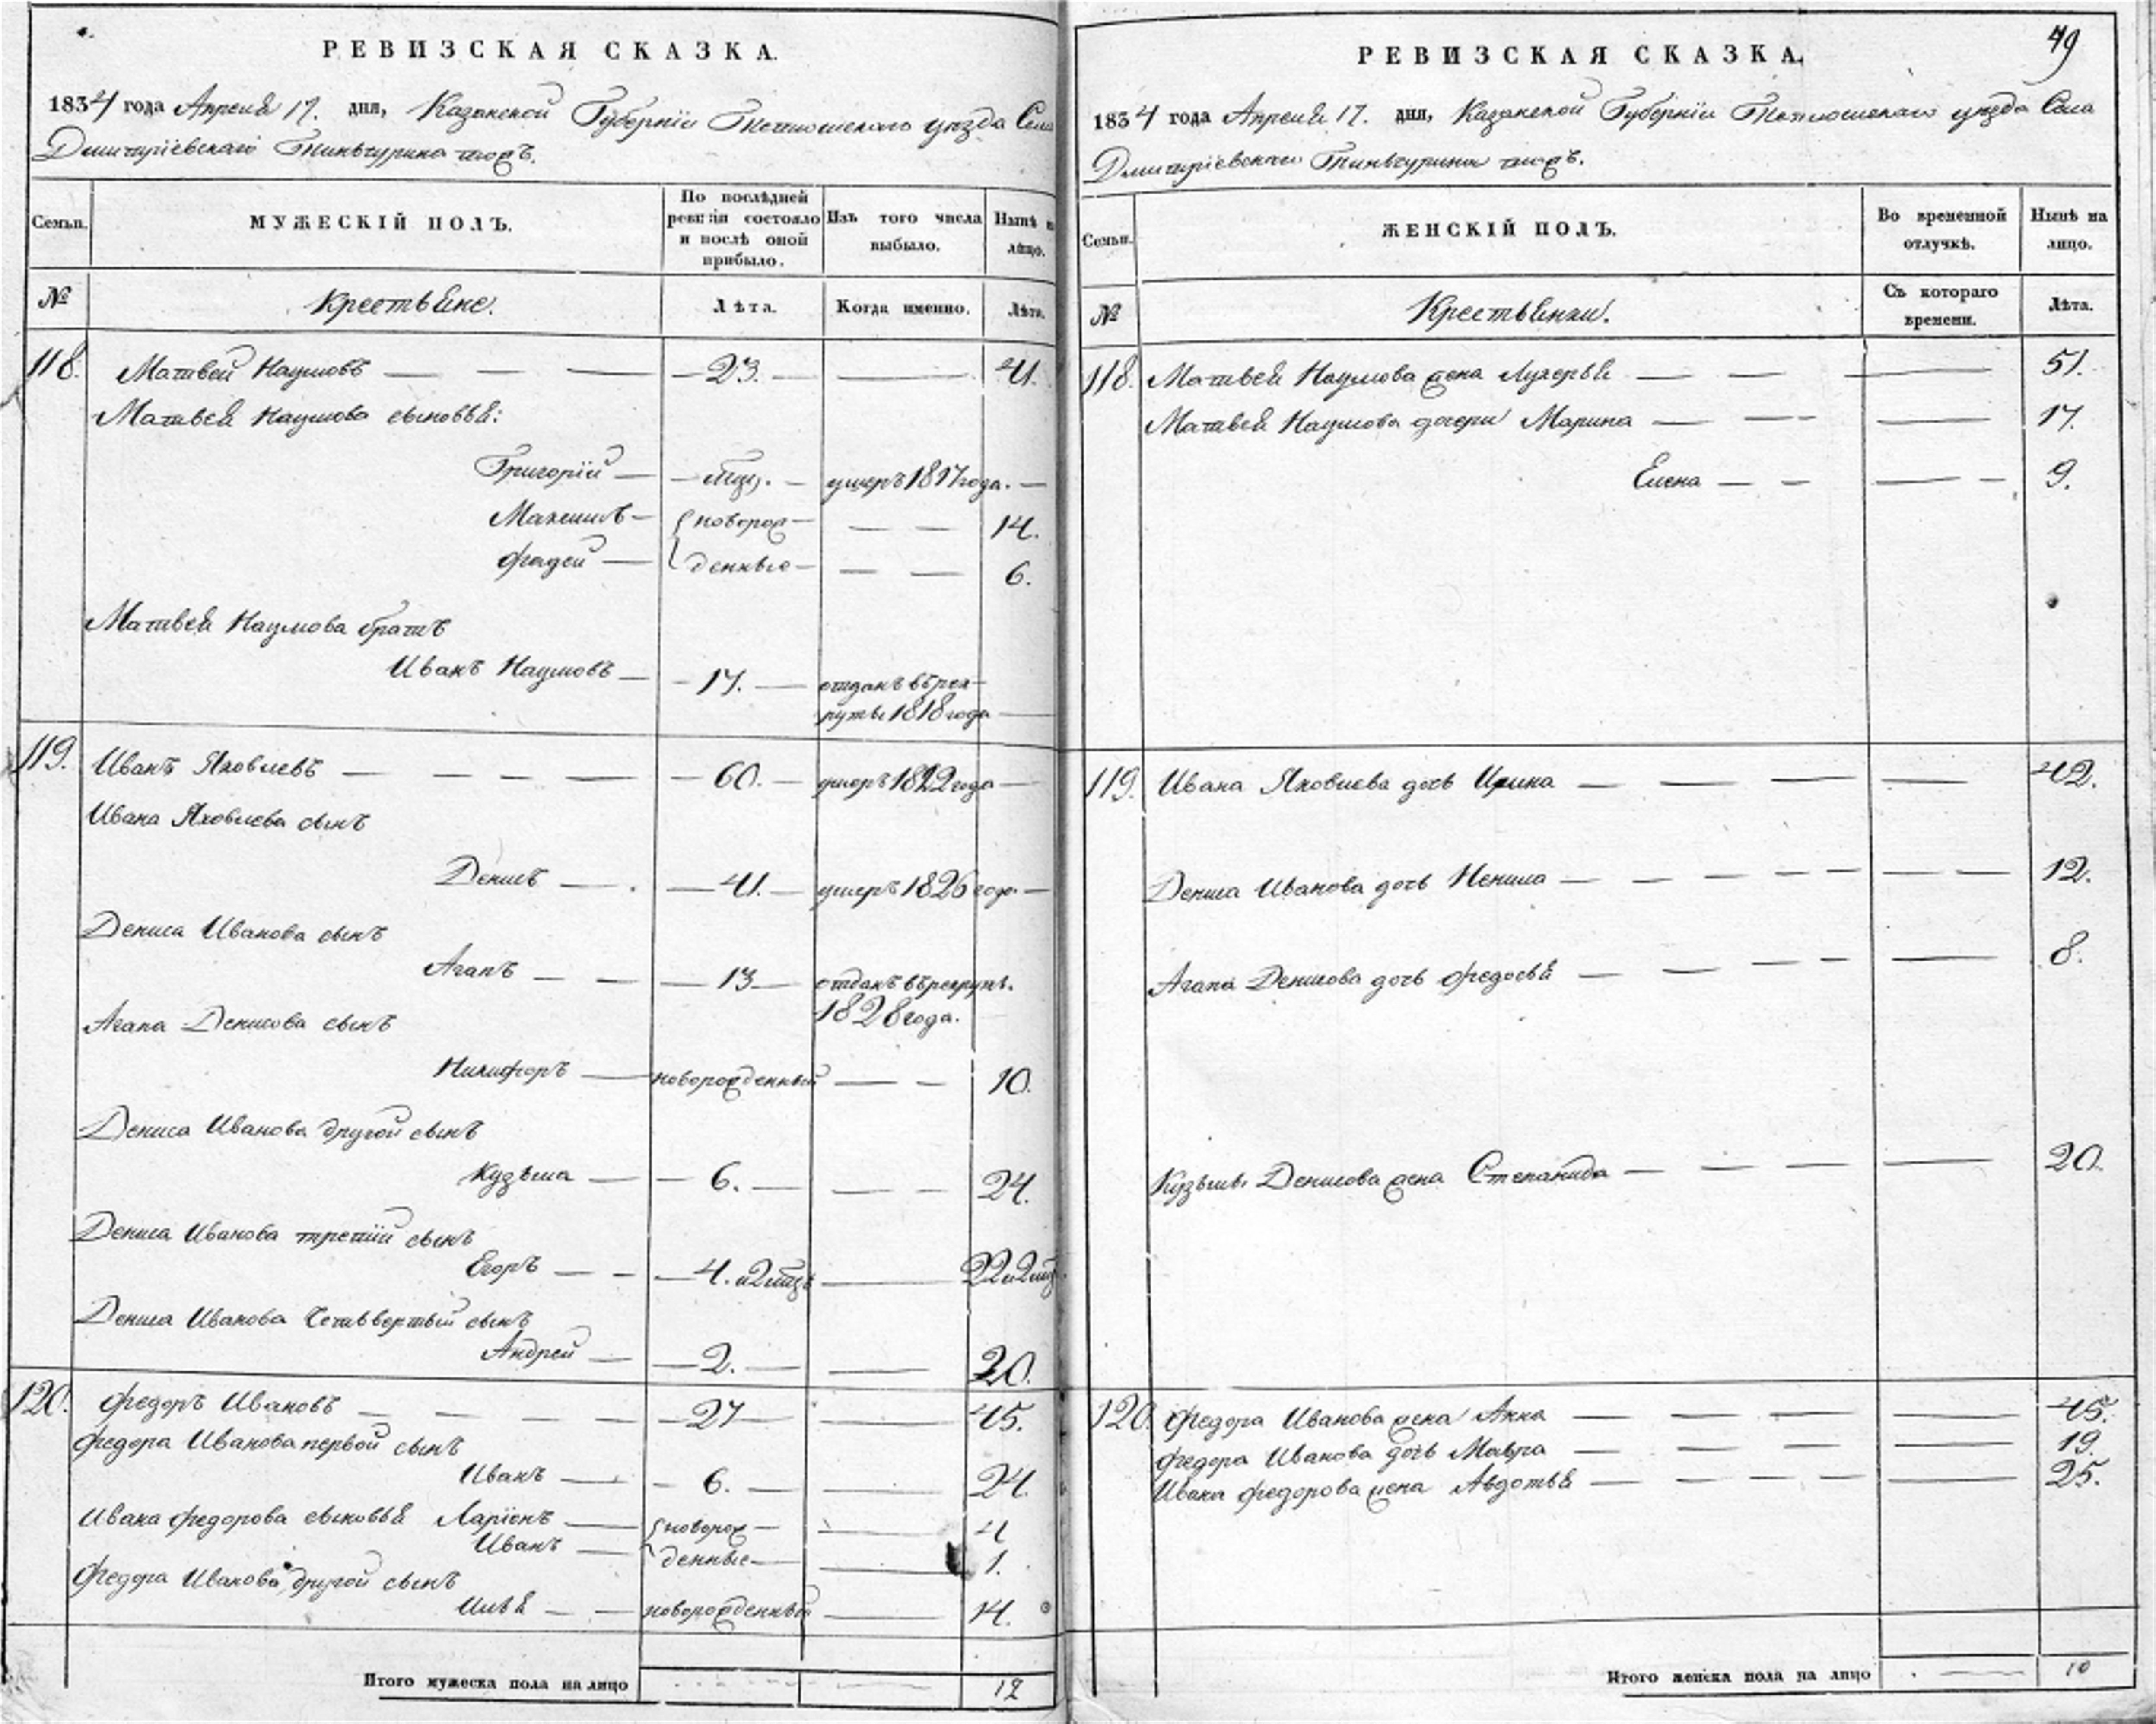 РЕВИЗСКАЯ СКАЗКА.
1834 года Апреля 17. дня, Казанской Губерніи Тетюшскаго уѣзда Села
Дмитріевскаго Тиньчурина тожъ.
Семьи.
МУЖЕСКІЙ ПОЛЪ.
По послѣдней
ревизіи состояло
и послѣ оной
прибыло.
Изъ того числа
выбыло.
Нынѣ на
лицо.
№
Крестьяне.
Лѣта.
Когда именно.
Лѣта.
118. Матвей Наумовъ — 23. — 41.
Матвея Наумова сыновья:
Григорій — умеръ 1817 года. —
Максимъ — новорож- — 14.
Фадей — денные — 6.
Матвея Наумова братъ
Иванъ Наумовъ — 17. — отданъ въ рек-
руты 1818 года —
119. Иванъ Яковлевъ — 60. — умеръ 1822 года —
Ивана Яковлева сынъ
Денисъ — 41. — умеръ 1826 года —
Дениса Иванова сынъ
Агапъ — 13 — отданъ въ рекрут.
1828 года.
Агапа Денисова сынъ
Никифоръ — новорожденный — 10.
Дениса Иванова другой сынъ
Кузьма — 6. — 24.
Дениса Иванова третій сынъ
Егоръ — 4. и 2 мѣц. — 22 и 2 мѣц.
Дениса Иванова Четвертый сынъ
Андрей — 2. — 20.
120. Федоръ Ивановъ — 27 — 45.
Федора Иванова первой сынъ
Иванъ — 6. — 24.
Ивана Федорова сыновья Ларіонъ — новорож- — 4
Иванъ — денные — 1.
Федора Иванова другой сынъ
Илья — новорожденный — 14.
Итого мужеска пола на лицо 12
РЕВИЗСКАЯ СКАЗКА.
49
1834 года Апреля 17. дня, Казанской Губерніи Тетюшскаго уѣзда Села
Дмитріевскаго Тиньчурина тожъ.
Семьи.
ЖЕНСКІЙ ПОЛЪ.
Во временной
отлучкѣ.
Нынѣ на
лицо.
№
Крестьянки.
Съ котораго
времени.
Лѣта.
118. Матвея Наумова жена Лукерья — 51.
Матвея Наумова дочери Марина — 17.
Елена — 9.
119. Ивана Яковлева дочь Ирина — 42.
Дениса Иванова дочь Ненила — 12.
Агапа Денисова дочь Федосья — 8.
Кузьмы Денисова жена Степанида — 20.
120. Федора Иванова жена Анна — 45.
Федора Иванова дочь Мавра — 19.
Ивана Федорова жена Авдотья — 25.
Итого женска пола на лицо 10